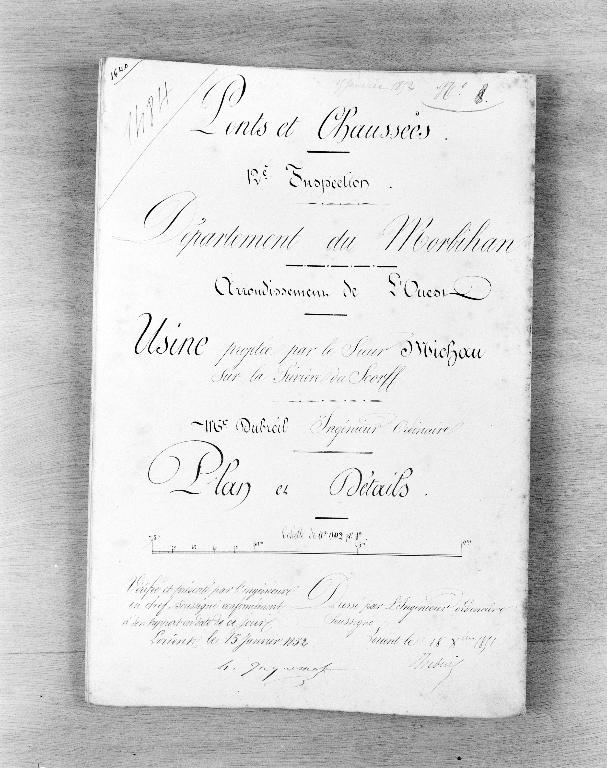 1640
1484
Janvier 1852
N° 8.
Ponts et Chaussées.
12e Inspection.
Département du Morbihan
Arrondissement de L'Ouest
Usine projetée par le Sieur Michau
sur la Rivière du Scorff
Mr Dubreil Ingénieur Ordinaire
Plan et Détails.
Echelle de
Vérifié et présenté par l'ingénieur
en chef, soussigné conformément
à son rapport en date de ce jour
Lorient, le 15 Janvier 1852
Dressé par L'Ingénieur Ordinaire
Soussigné
Lorient le 18 Xbre 1851